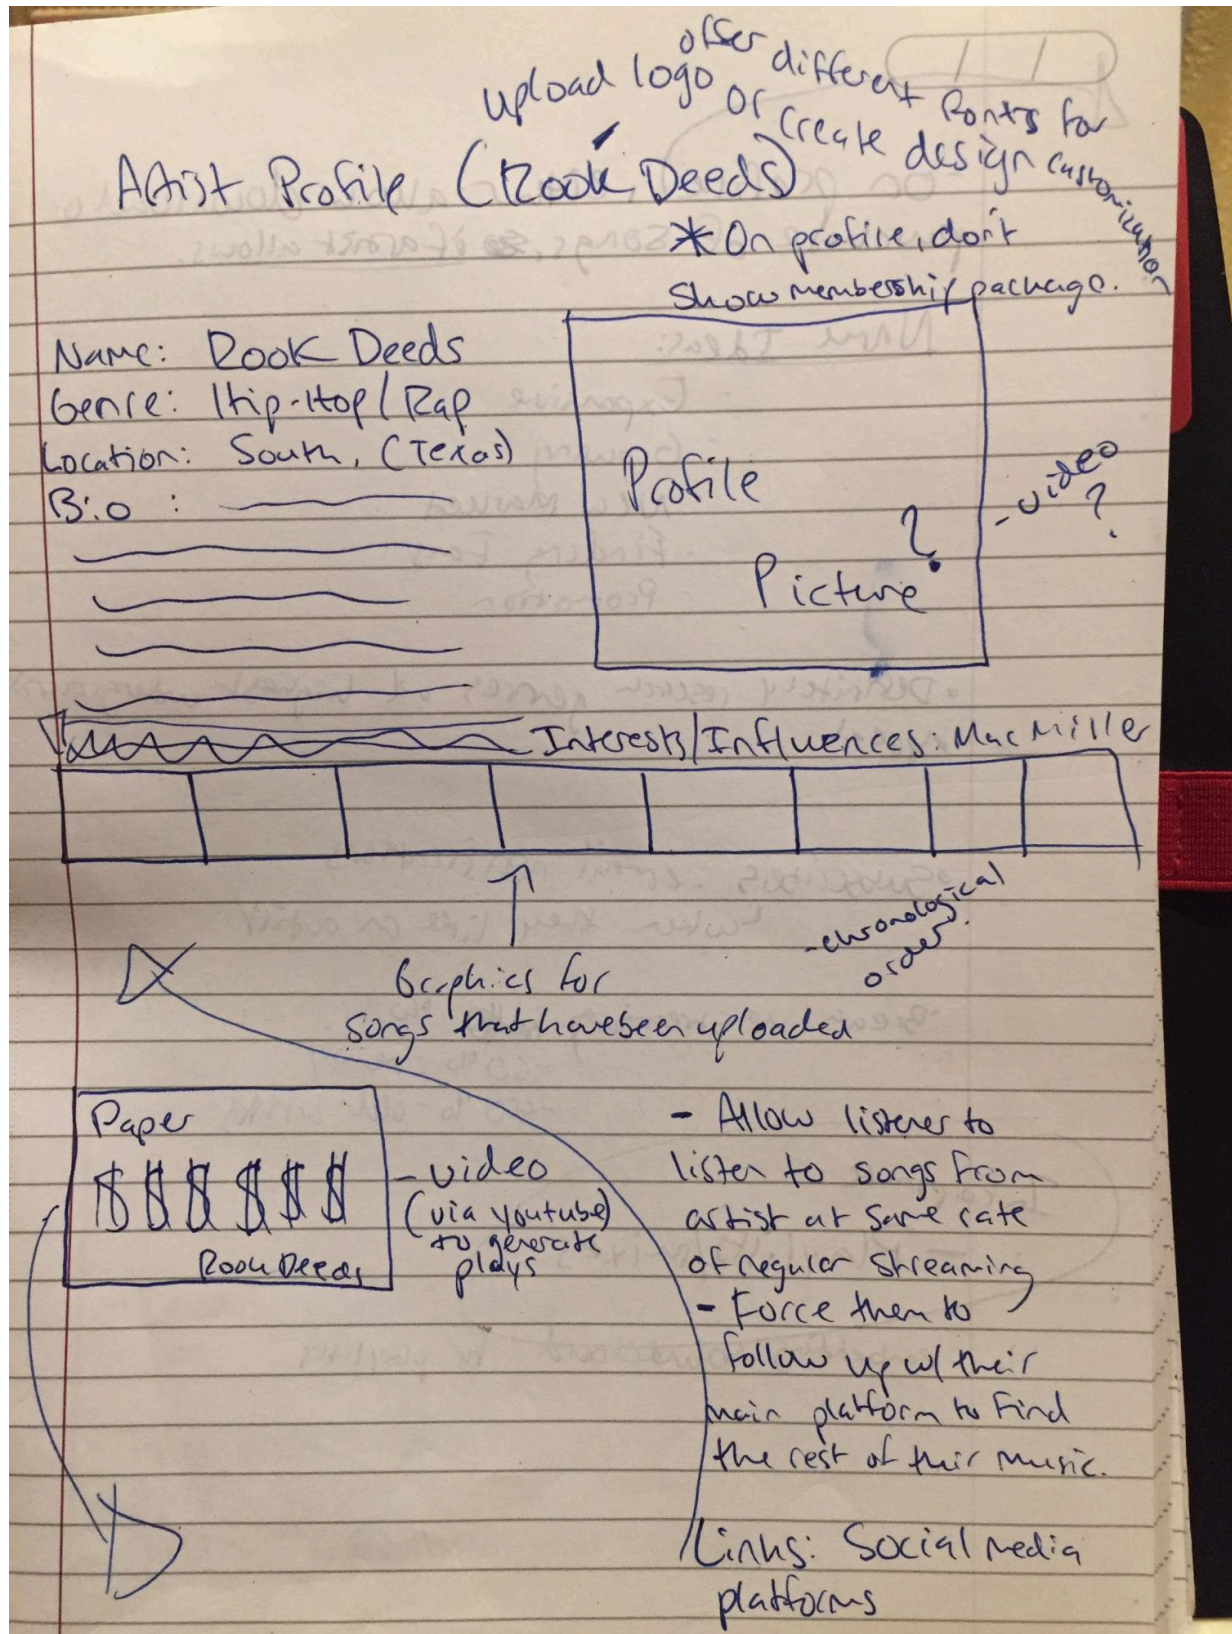 upload logo or create design
offer different fonts for customization
Artist Profile (Rook Deeds)
* On profile, don't
show membership package.
Name: Rook Deeds
Genre: Hip-Hop / Rap
Location: South, (Texas)
Bio :
Profile
Picture ?
- video ?
Interests/Influences: Mac Miller
- chronological
order.
Graphics for
songs that have been uploaded
Paper
$ $ $ $ $ $
Rook Deeds
- video
(via youtube)
to generate
plays
- Allow listener to
listen to songs from
artist at same rate
of regular streaming
- Force them to
follow up w/ their
main platform to find
the rest of their music.
Links: Social media
platforms